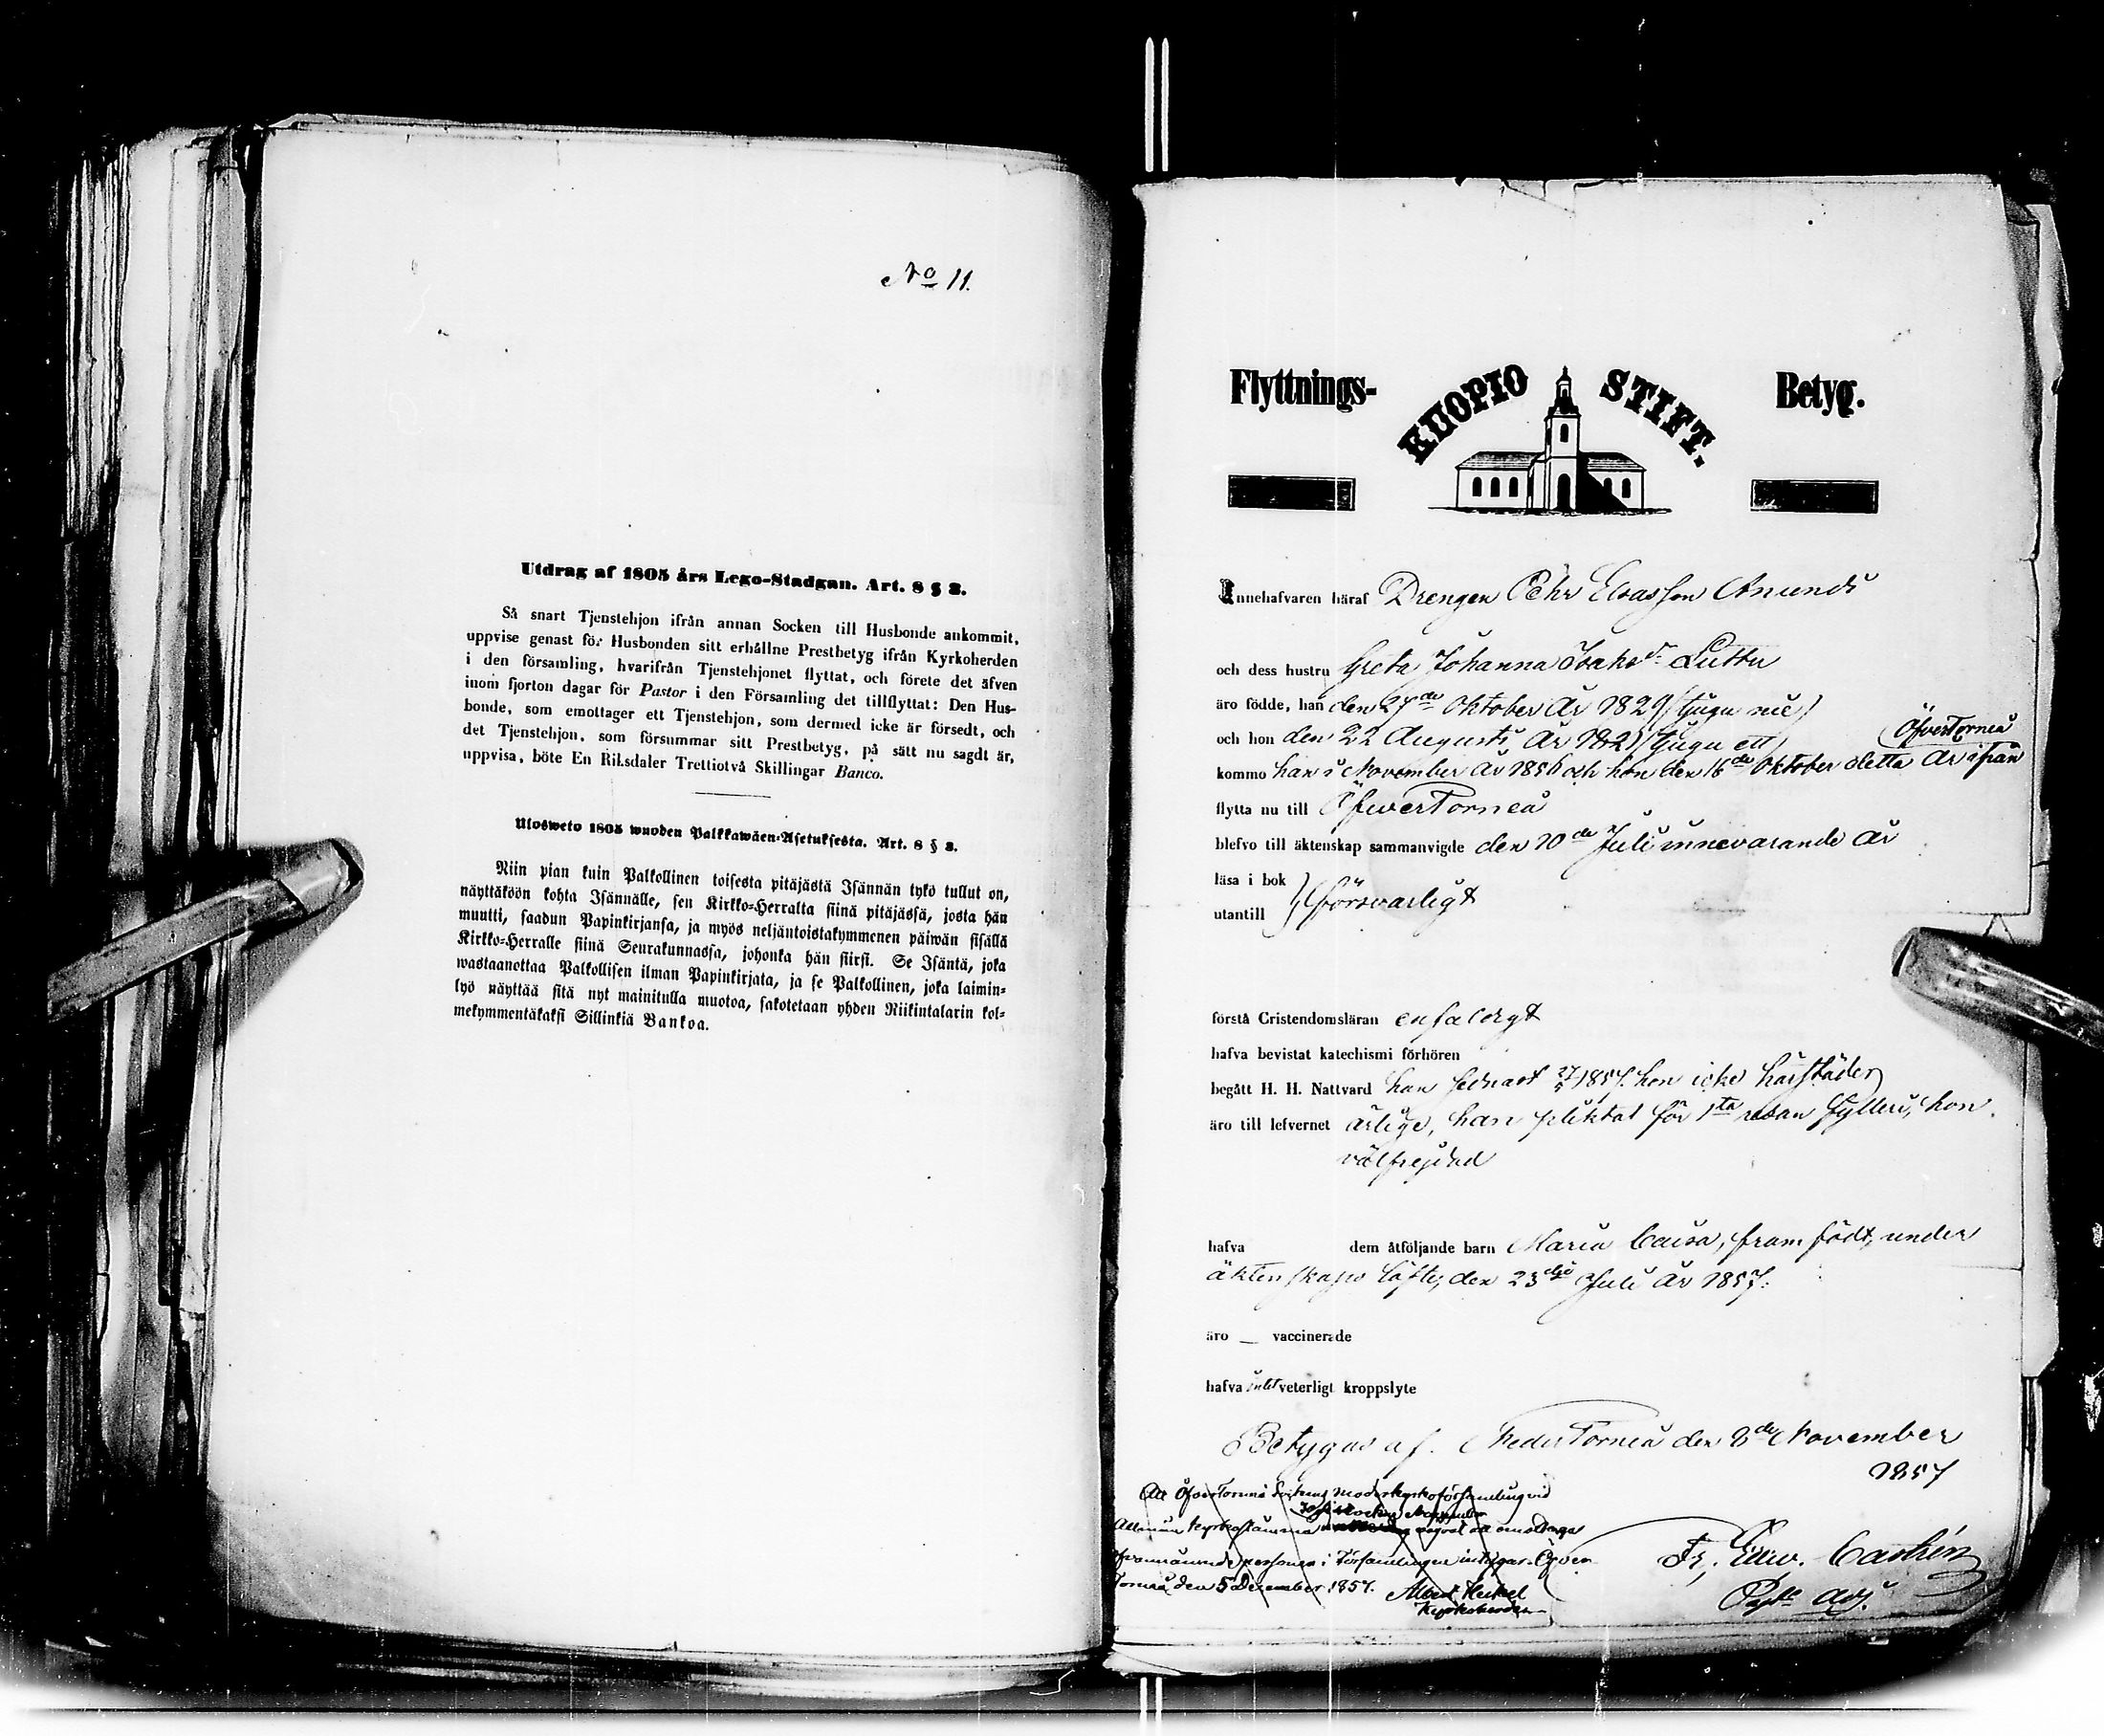 No 11.
Utdrag af 1805 års Lego-Stadgan. Art. 8 § 3.
Så snart Tjenstehjon ifrån annan Socken till Husbonde ankommit,
uppvise genast för Husbonden sitt erhållne Prestbetyg ifrån Kyrkoherden
i den församling, hvarifrån Tjenstehjonet flyttat, och förete det äfven
inom fjorton dagar för Pastor i den Församling det tillflyttat: Den Hus-
bonde, som emottager ett Tjenstehjon, som dermed icke är försedt, och
det Tjenstehjon, som försummar sitt Prestbetyg, på sätt nu sagdt är,
uppvisa, böte En Riksdaler Trettiotvå Skillingar Banco.
Ulosweto 1805 wuoden Palkkawäen-Asetuksesta. Art. 8 § 3.
Niin pian kuin Palkollinen toisesta pitäjästä Isännän tykö tullut on,
näyttäköön kohta Isännälle, sen Kirkko-Herralta siinä pitäjässä, josta hän
muutti, saadun Papinkirjansa, ja myös neljäntoistakymmenen päiwän sisällä
Kirkko-Herralle siinä Seurakunnassa, johonka hän siirsi. Se Isäntä, joka
wastaanottaa Palkollisen ilman Papinkirjata, ja se Palkollinen, joka laimin-
lyö näyttää sitä nyt mainitulla muotoa, sakotetaan yhden Riikintalarin kol-
mekymmentäkaksi Sillinkiä Bankoa.
Flyttnings- KUOPIO STIFT. Betyg.
Innehafvaren häraf Drengen Pehr Elias son Anunds
och dess hustru Greta Johanna Isaks dr Luttu
äro födde, han den 27de Oktober År 1829 (tjugu nie)
och hon den 22 Augusti År 1821 (tjugu ett) ÖfverTorneå
kommo han i November År 1856 och hon den 16de Oktober detta År ifrån
flytta nu till ÖfwerTorneå
blefvo till äktenskap sammanvigde den 10de Juli innevarande År
läsa i bok
utantill } försvarligt
förstå Cristendomsläran enfaldigt
hafva bevistat katechismi förhören
begått H. H. Nattvard han sednast 27/ 1857. hon icke härstädes
äro till lefvernet ärlige, han pliktat för 1sta resan fylleri, hon
välfrejdad
hafva dem åtföljande barn Maria Caisa, framfödt, under
äktenskaps löfte, den 23dje Juli År 1857.
äro — vaccinerade
hafva intet veterligt kroppslyte
Betygas af. NederTorneå den 8de November
1857
Att ÖfverTorneå Sockens Moderkyrkoförsamling vid
Allmän Kyrkostämma att emottaga
ofvannämnde personer i Församlingen intygar. Öfver
Torneå den 5 December 1857. Albert Heikel
Kyrkoherde
Fr. Edw. Castrén
Past. Adj.